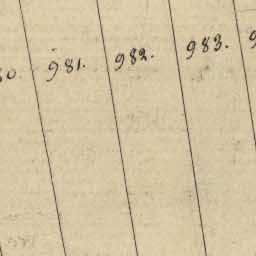 981. 982. 983.